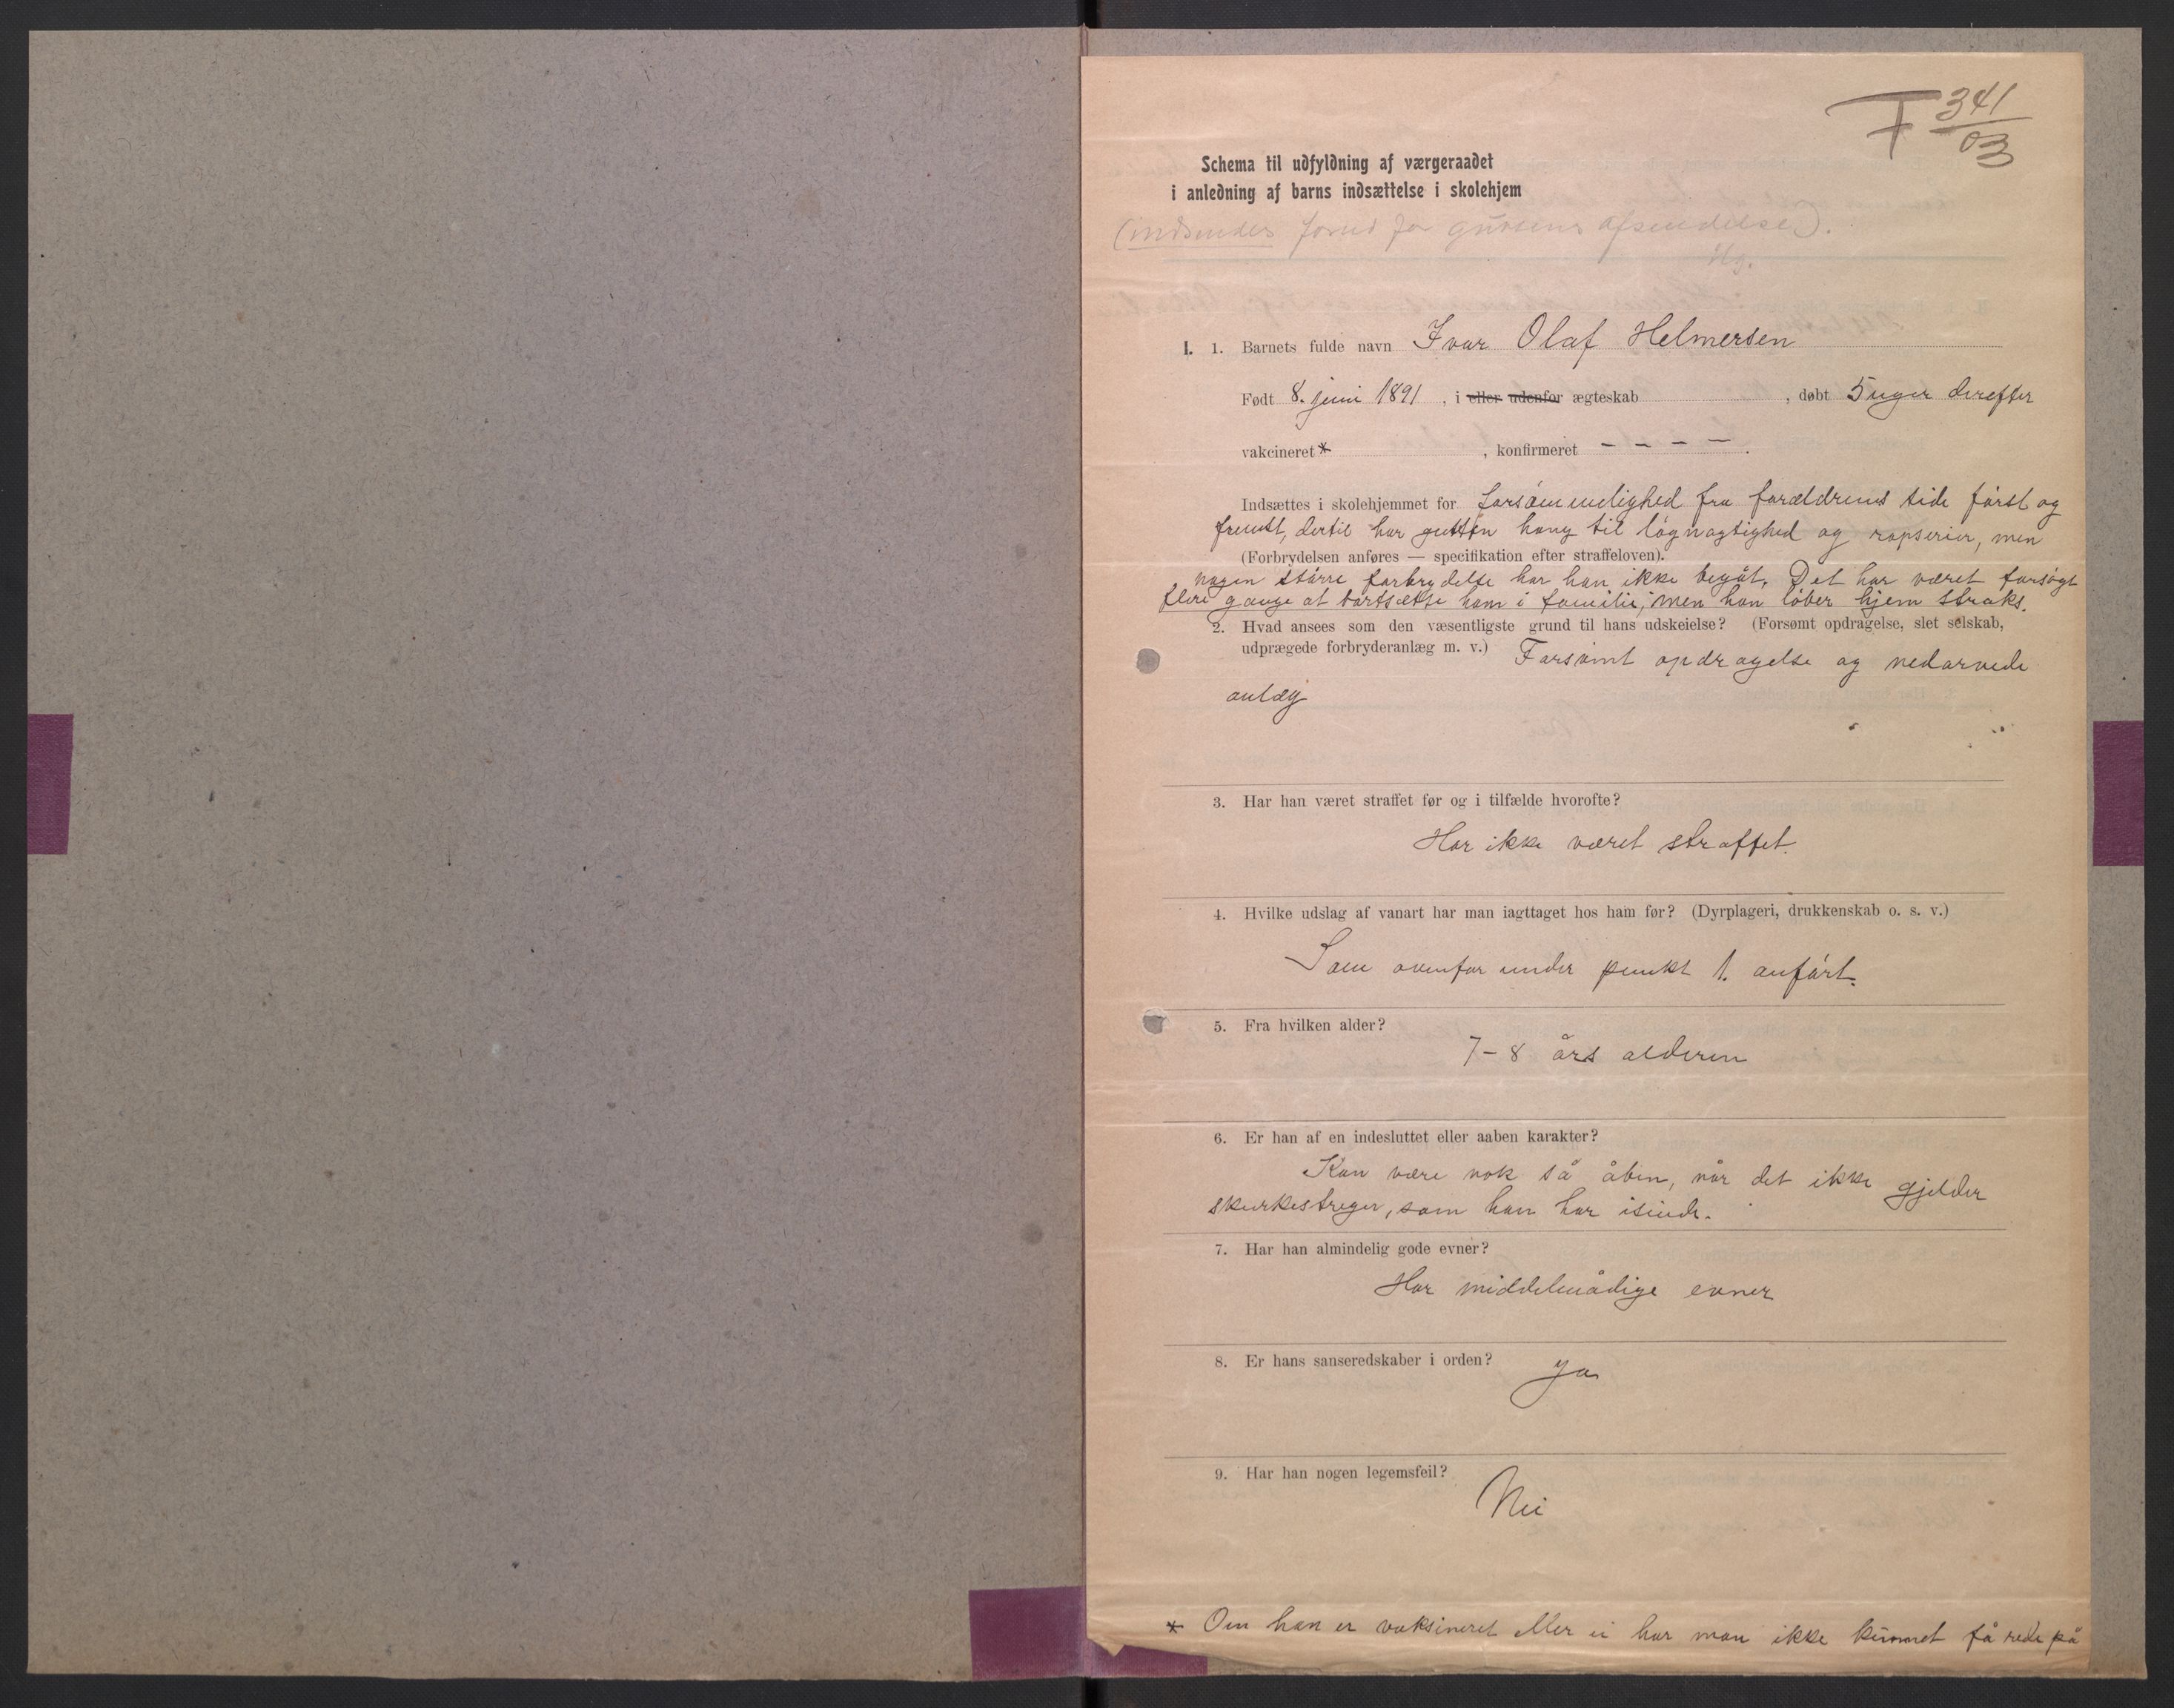 F 341
03
Schema til udfyldning af værgeraadet
i anledning af barns indsættelse i skolehjem
(indsendes forud for guttens afsendelse).
I. 1. Barnets fulde navn Ivar Olaf Helmersen
Født 8. juni 1891, i eller udenfor ægteskab , døbt 5 uger derefter
vakcineret * , konfirmeret – – – – .
Indsættes i skolehjemmet for forsømmelighed fra forældrenes side først og
fremst, dertil har gutten hang til løgnagtighed og rapserier, men
(Forbrydelsen anføres — specifikation efter straffeloven).
nogen større forbrydelse har han ikke begåt. Det har været forsøgt
flere gange at bortsætte ham i familie, men han løber hjem straks.
2. Hvad ansees som den væsentligste grund til hans udskeielse? (Forsømt opdragelse, slet selskab,
udprægede forbryderanlæg m. v.) Forsømt opdragelse og nedarvede
anlæg
3. Har han været straffet før og i tilfælde hvorofte?
Har ikke været straffet.
4. Hvilke udslag af vanart har man iagttaget hos ham før? (Dyrplageri, drukkenskab o. s. v.)
Som ovenfor under punkt 1. anført.
5. Fra hvilken alder?
7–8 års alderen
6. Er han af en indesluttet eller aaben karakter?
Kan være nok så åben, når det ikke gjelder
skurkestreger, som han har isinde.
7. Har han almindelig gode evner?
Har middelmådige evner
8. Er hans sanseredskaber i orden? Ja
9. Har han nogen legemsfeil?
Nei
* Om han er vaksineret eller ei har man ikke kunnet få rede på